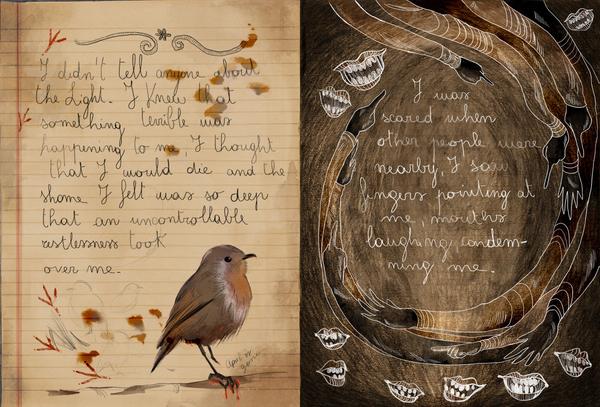 I didn't tell anyone about
the Light. I knew that
something terible was
happening to me, I thought
that I would die and the
shame I felt was so deep
that an uncontrollable
restlessness took
over me.
I was
scared when
other people were
nearby, I saw
fingers pointing at
me, mouths
laughing, condem-
ning me.